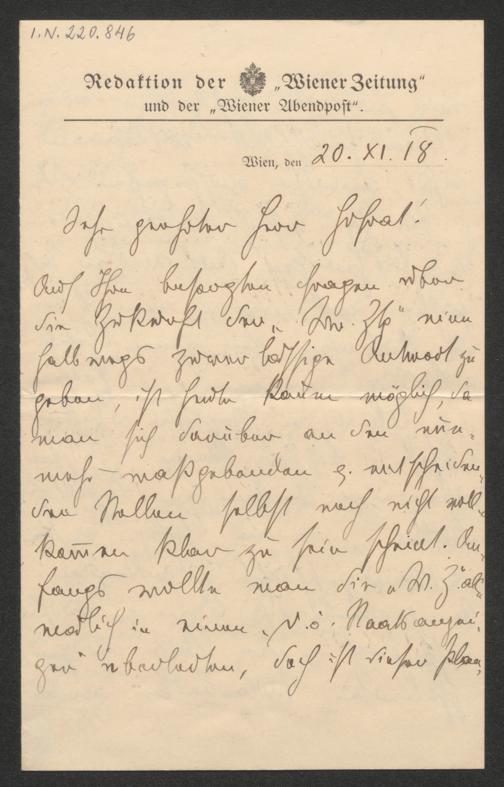 I.N. 220.846
Redaktion der „Wiener Zeitung“
und der „Wiener Abendpost“.
Wien, den 20. XI. 18.
Sehr geehrter Herr Hofrat!
Auf Ihre besorgten Fragen über
die Zukunft der „Wr. Ztg“ eine
halbwegs zuverlässige Antwort zu
geben, ist heute kaum möglich, da
man sich darüber an den nun-
mehr maßgebenden u. entscheiden-
den Stellen selbst noch nicht voll-
kommen klar zu sein scheint. An-
fangs wollte man die „W. Z.“ all-
mählich in einen „D.ö. Staatsanzei-
ger“ überleiten, doch ist dieser Plan,